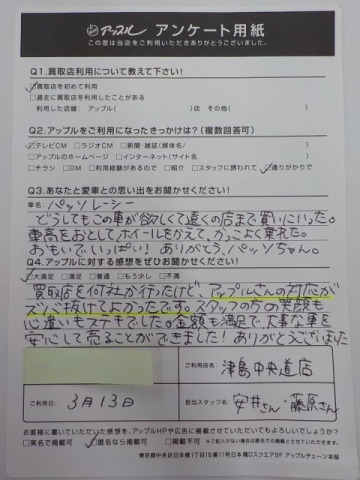 アップル アンケート用紙
この度は当店をご利用いただきありがとうございました。
Q1.買取店利用について教えて下さい!
☑買取店を初めて利用
□過去に買取店を利用したことがある
利用した店舗: アップル( )店 その他( )
Q2.アップルをご利用になったきっかけは?(複数回答可)
☑テレビCM □ラジオCM □新聞・雑誌(媒体名/ )
□アップルのホームページ □インターネット(サイト名 )
□チラシ □DM □利用経験があるので □紹介 □スタッフに誘われて ☑通りがかりで
Q3.あなたと愛車との思い出をお聞かせください!
車名 パッソレーシー
どうしてもこの車が欲しくて遠くの店まで買いにいった。
車高をおとしてホイールをかえて、かっこよく乗れた。
おもいでいっぱい! ありがとうパッソちゃん。
Q4.アップルに対する感想をぜひお聞かせください!
☑大満足 □満足 □普通 □もう少し □不満
買取店を何社か行ったけど、アップルさんの対応が
ズバ抜けてよかったです。スタッフの方の笑顔も
心遣いもステキでした。金額も満足で、大事な車を
安心して売ることができました!ありがとうございました
ご利用店名: 津島中央道店
ご利用日: 3月13日
担当スタッフ名: 安井さん・藤原さん
お客様に書いていただいた感想を、アップルHPや広告に掲載させていただいてもよろしいでしょうか?
□実名で掲載可 ☑匿名なら掲載可 □掲載不可
東京都中央区日本橋1丁目16番11号日本橋Dスクエア9F アップルチェーン本部